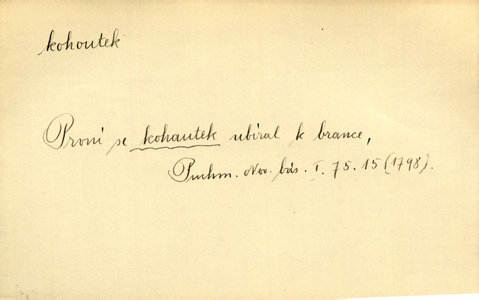 kohoutek
Proni se kohautek ubíral k brance,
Puchm. Nov. bás. I. 75. 15 (1798).